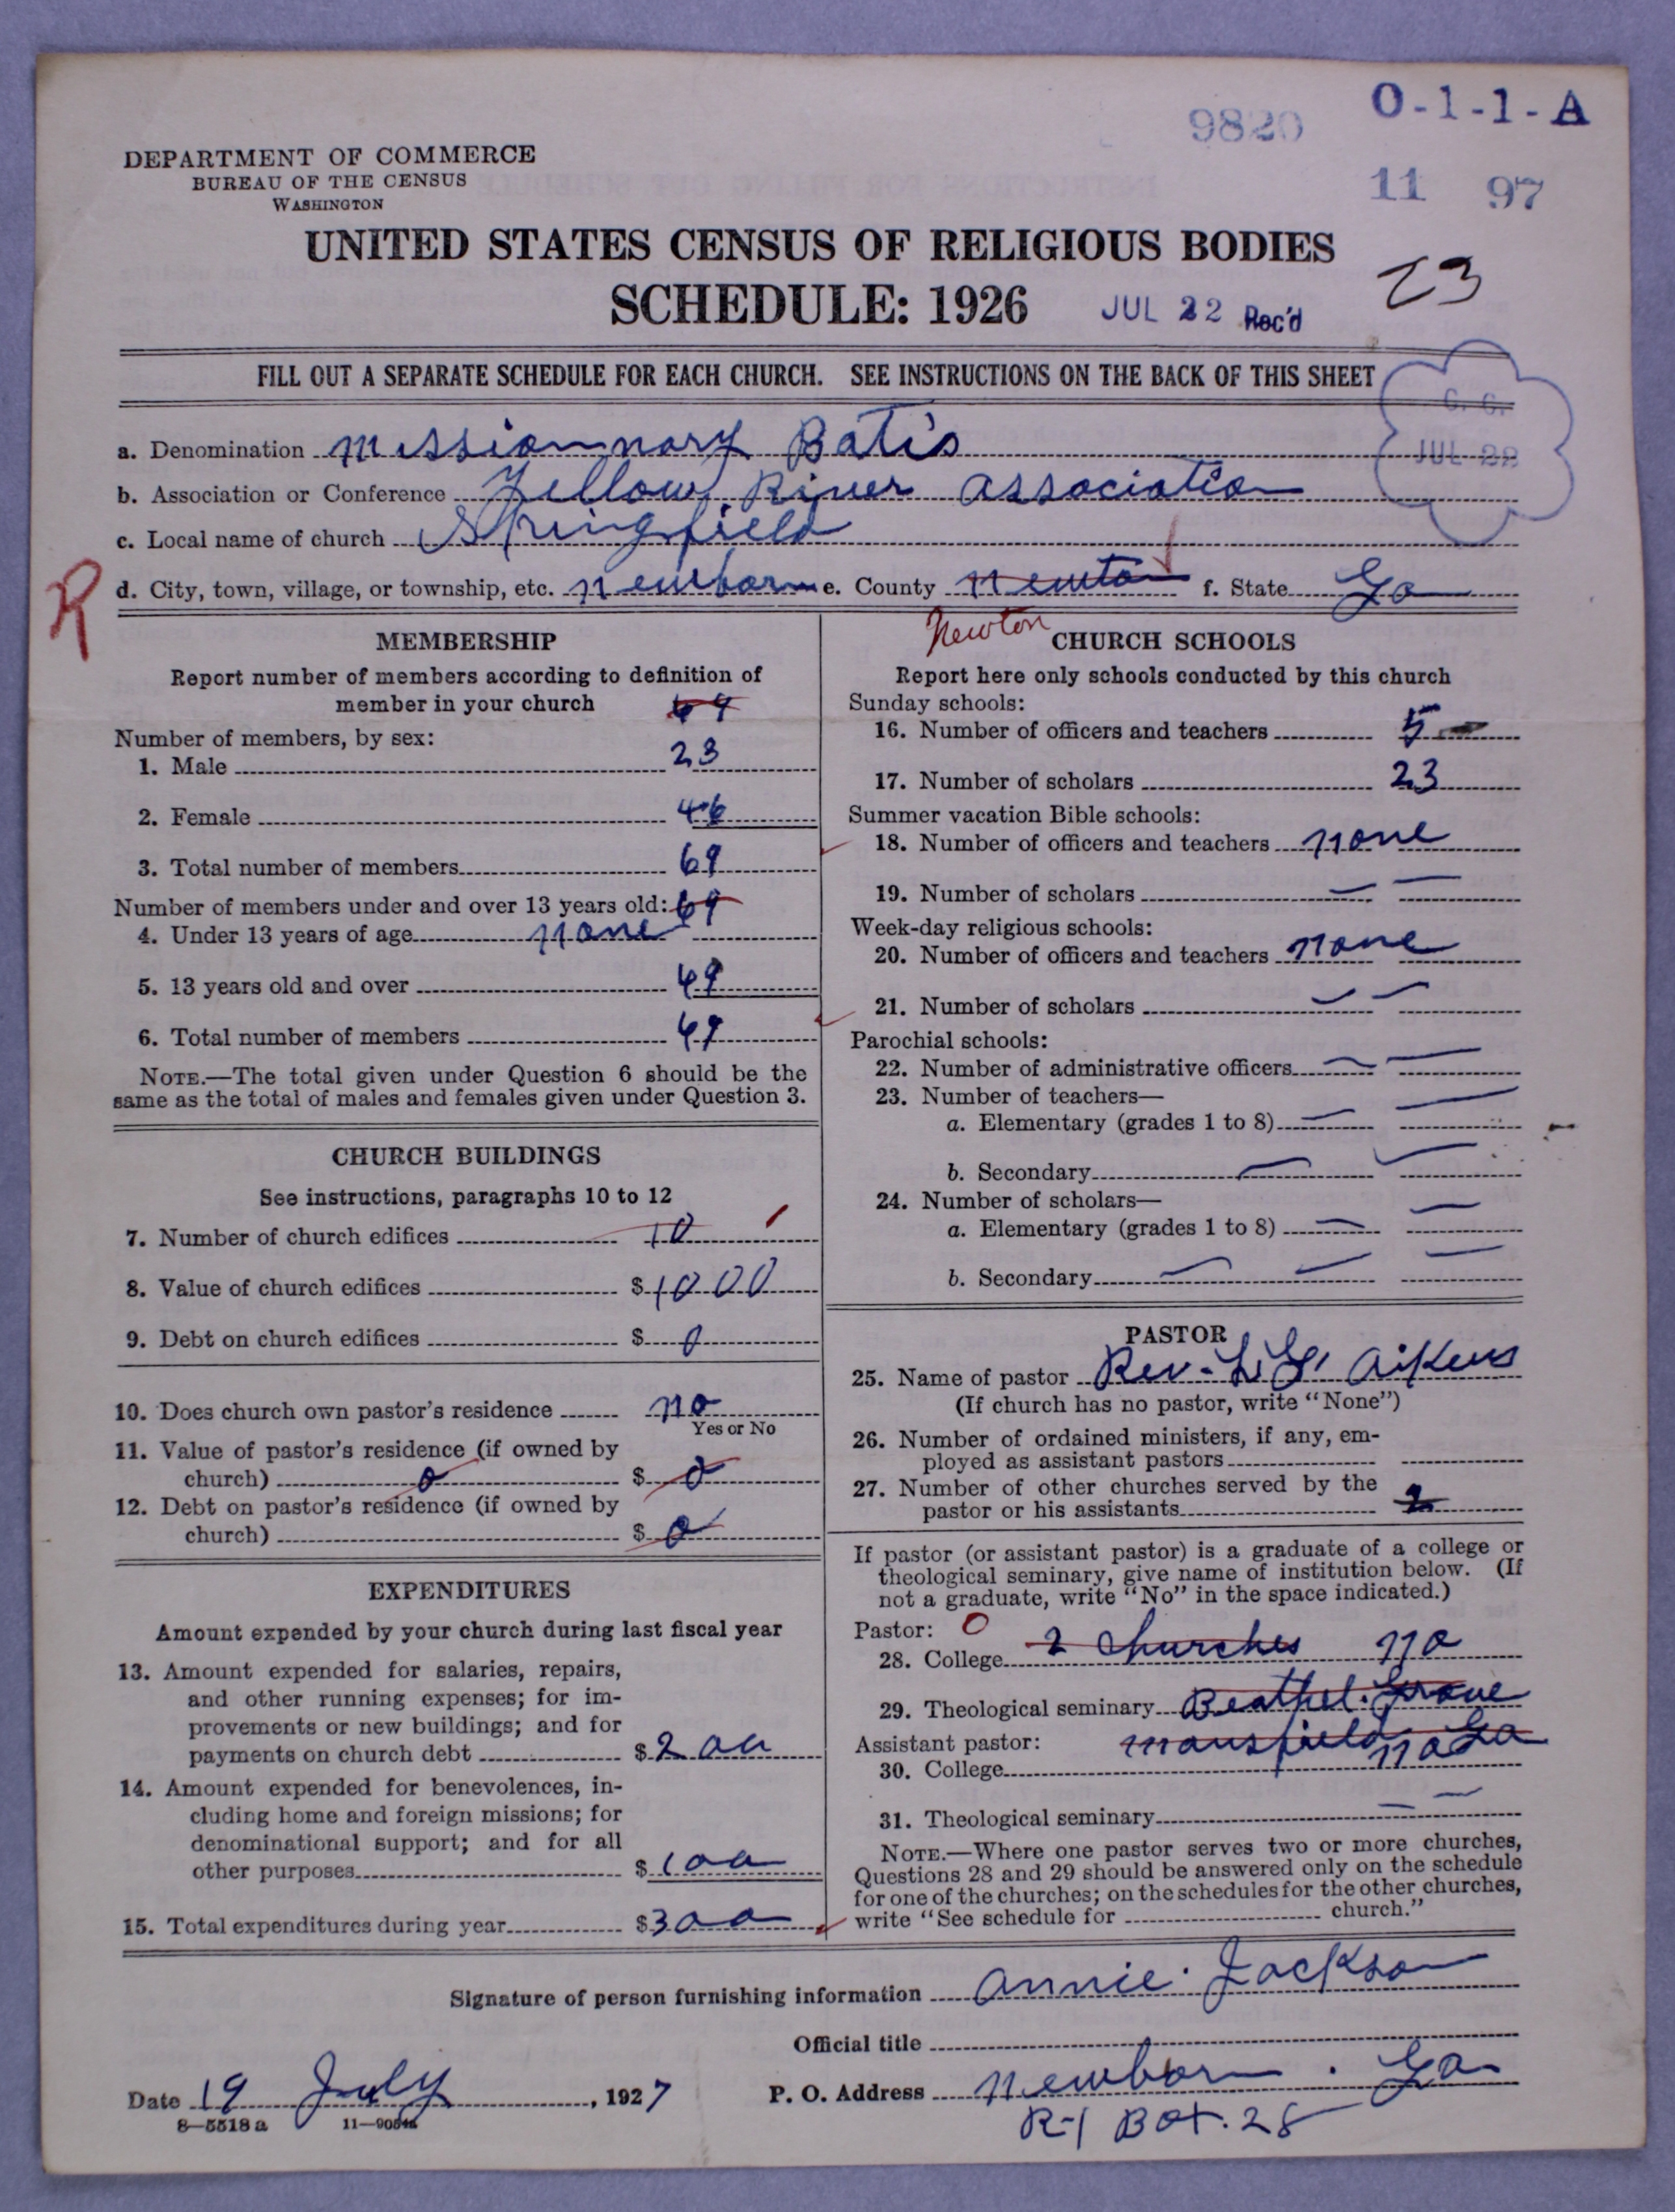 9820
O-1-1-A
DEPARTMENT OF COMMERCE
BUREAU OF THE CENSUS
WASHINGTON
11 97
UNITED STATES CENSUS OF RELIGIOUS BODIES
SCHEDULE: 1926
JUL 22 Rec'd
23
FILL OUT A SEPARATE SCHEDULE FOR EACH CHURCH. SEE INSTRUCTIONS ON THE BACK OF THIS SHEET
JUL 22
a. Denomination Missionnary Batis
b. Association or Conference Yellow River Association
c. Local name of church Springfield
R
d. City, town, village, or township, etc. Newborn e. County Newton f. State Ga
Newton
MEMBERSHIP
Report number of members according to definition of
member in your church
69
Number of members, by sex:
1. Male 23
2. Female 46
3. Total number of members 69
Number of members under and over 13 years old: 69
4. Under 13 years of age none
5. 13 years old and over 69
6. Total number of members 69
NOTE.—The total given under Question 6 should be the
same as the total of males and females given under Question 3.
CHURCH BUILDINGS
See instructions, paragraphs 10 to 12
7. Number of church edifices 10 1
8. Value of church edifices $1000
9. Debt on church edifices $ 0
10. Does church own pastor's residence no
Yes or No
11. Value of pastor's residence (if owned by
church) 0 $ 0
12. Debt on pastor's residence (if owned by
church) $ 0
EXPENDITURES
Amount expended by your church during last fiscal year
13. Amount expended for salaries, repairs,
and other running expenses; for im-
provements or new buildings; and for
payments on church debt $200
14. Amount expended for benevolences, in-
cluding home and foreign missions; for
denominational support; and for all
other purposes $100
15. Total expenditures during year $300
CHURCH SCHOOLS
Report here only schools conducted by this church
Sunday schools:
16. Number of officers and teachers 5
17. Number of scholars 23
Summer vacation Bible schools:
18. Number of officers and teachers none
19. Number of scholars
Week-day religious schools:
20. Number of officers and teachers none
21. Number of scholars
Parochial schools:
22. Number of administrative officers
23. Number of teachers—
a. Elementary (grades 1 to 8)
b. Secondary
24. Number of scholars—
a. Elementary (grades 1 to 8)
b. Secondary
PASTOR
25. Name of pastor Rev. L. G. Aikens
(If church has no pastor, write "None")
26. Number of ordained ministers, if any, em-
ployed as assistant pastors
27. Number of other churches served by the
pastor or his assistants 2
If pastor (or assistant pastor) is a graduate of a college or
theological seminary, give name of institution below. (If
not a graduate, write "No" in the space indicated.)
Pastor: O
28. College 2 churches no
29. Theological seminary Beathel. Grove
Assistant pastor: mansfield Ga
30. College no
31. Theological seminary
NOTE.—Where one pastor serves two or more churches,
Questions 28 and 29 should be answered only on the schedule
for one of the churches; on the schedules for the other churches,
write "See schedule for church."
Signature of person furnishing information Annie Jackson
Official title
Date 19 July, 1927
P. O. Address Newborn. Ga
R-1 Box. 28
8—5518 a 11—9054a